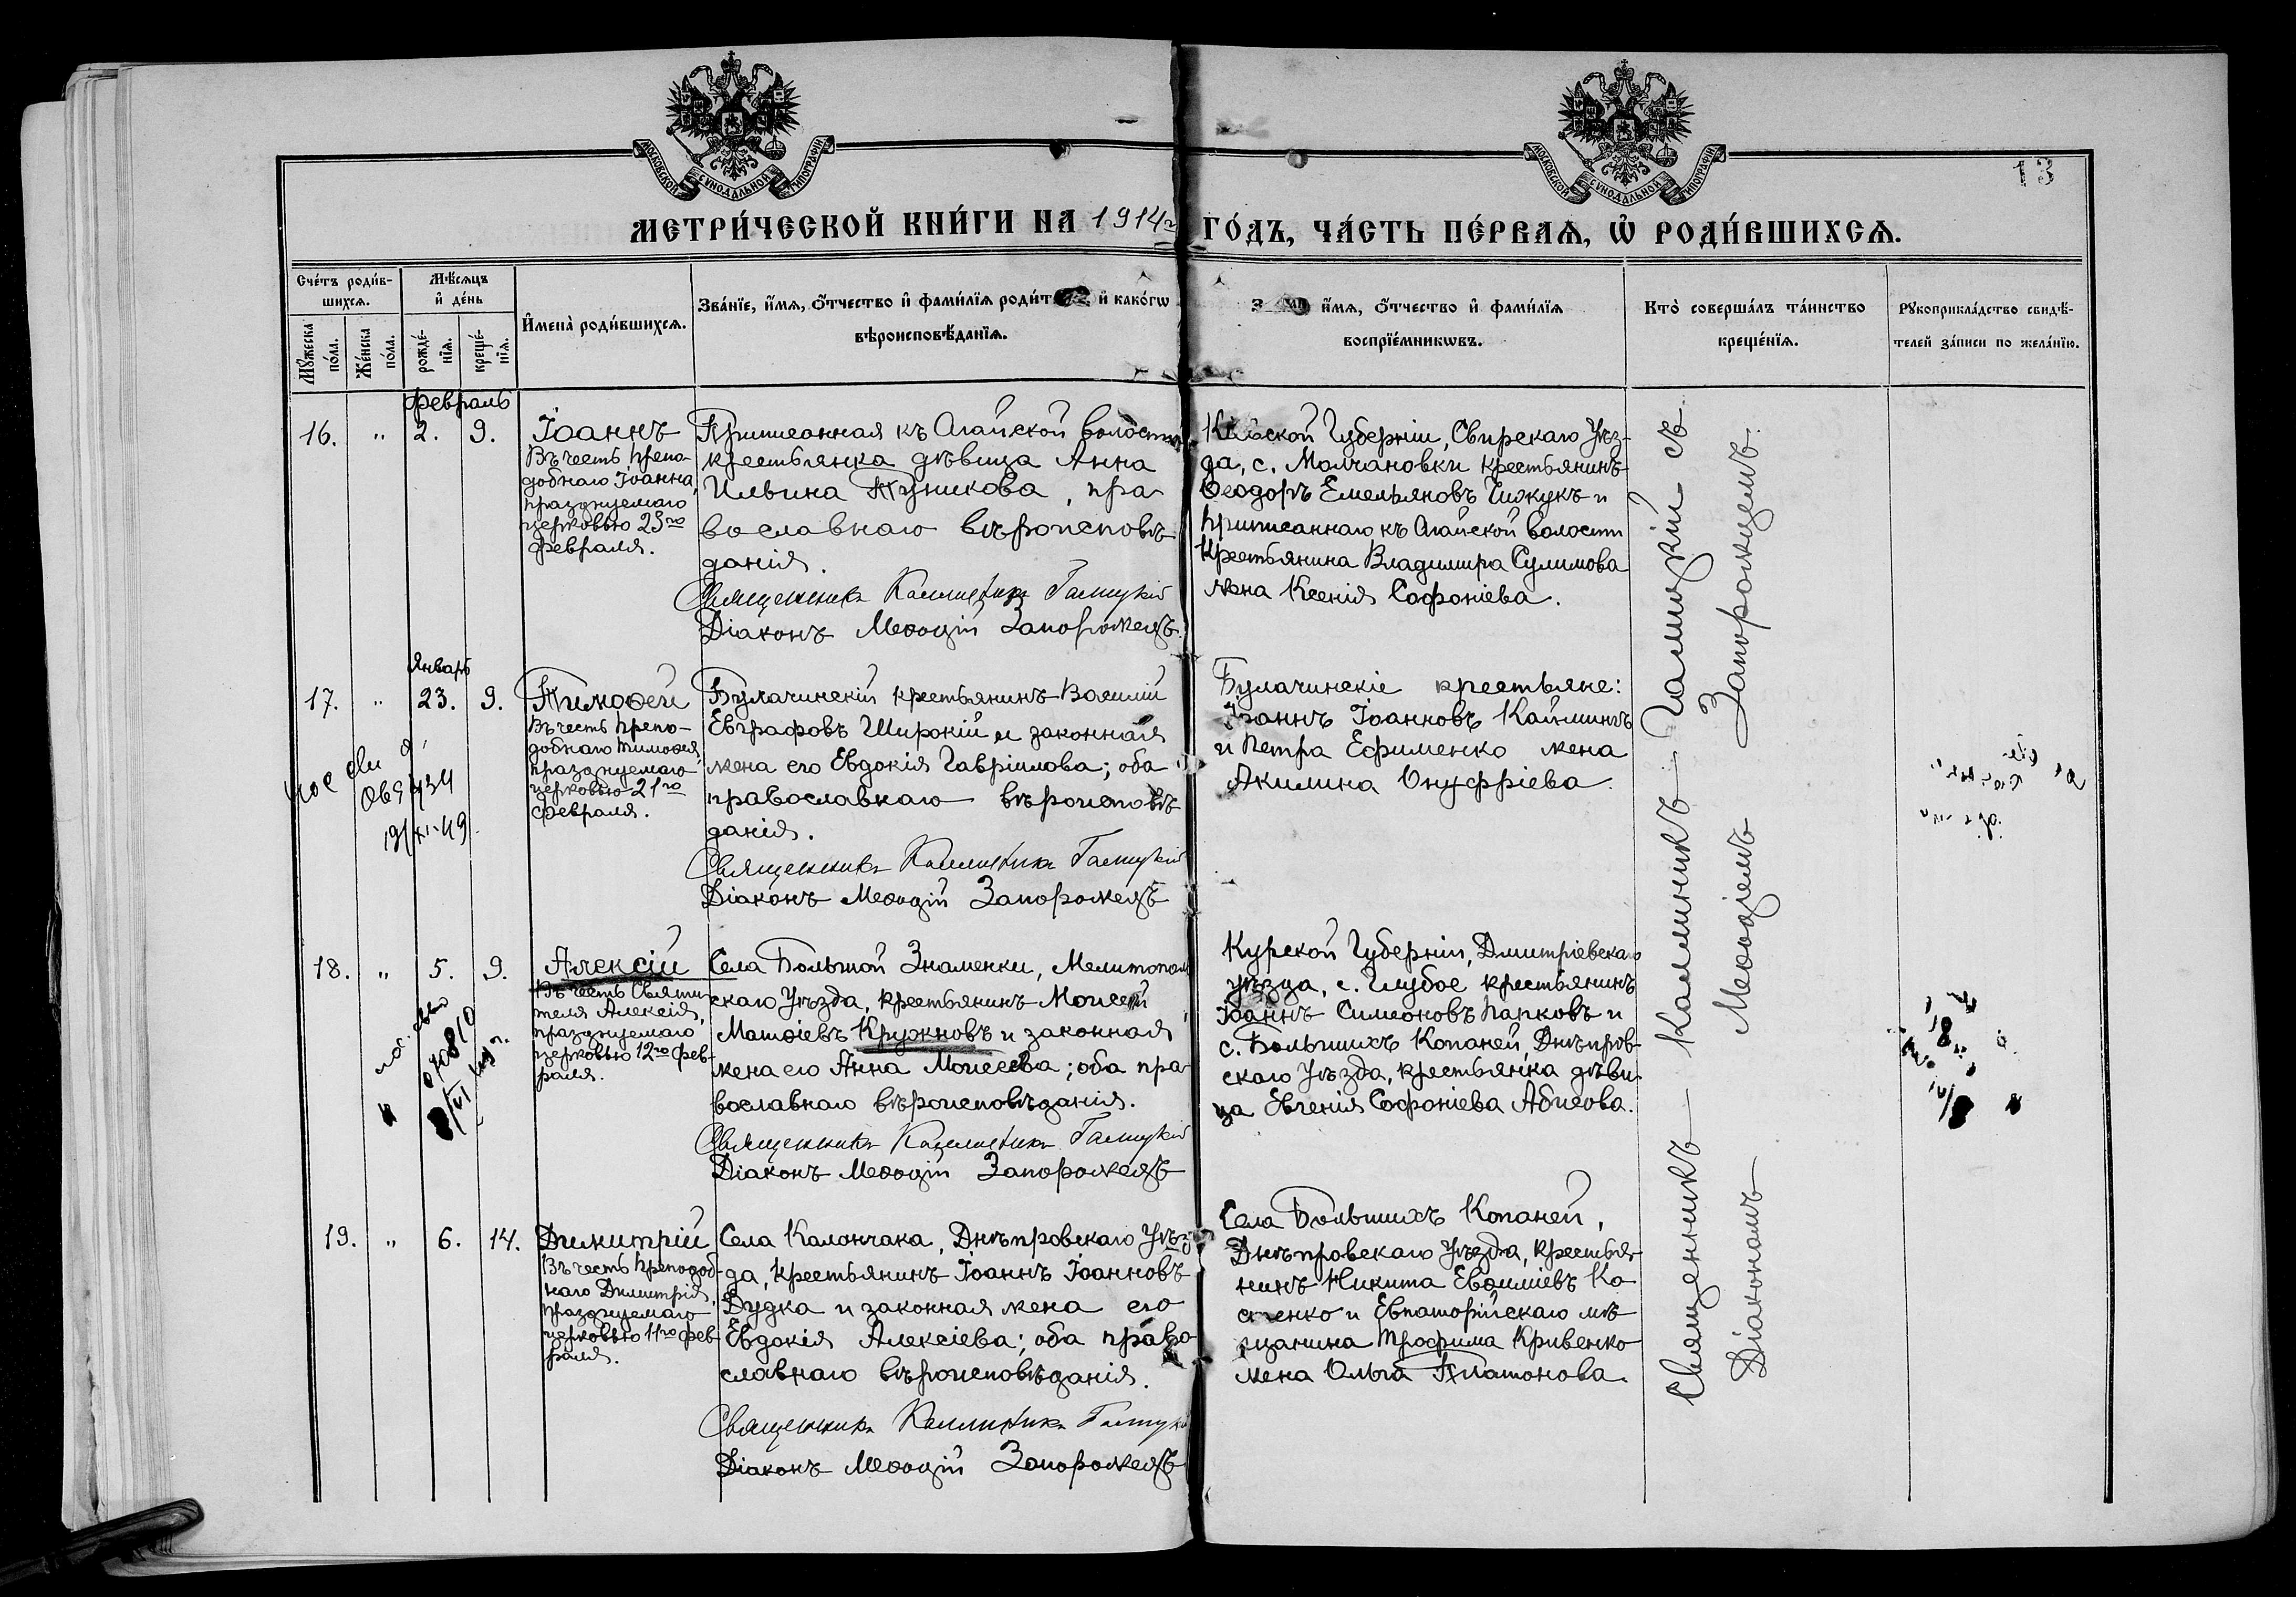 МОСКОВСКОЙ СѴНОДАЛЬНОЙ ТИПОГРАФІИ
МОСКОВСКОЙ СѴНОДАЛЬНОЙ ТИПОГРАФІИ
13
МЕТРИ́ЧЕСКОЙ КНИ́ГИ НА 1914 ГО́ДЪ, ЧА́СТЬ ПЕ́РВАѦ, Ѡ҆ РОДИ́ВШИХСѦ.
Сче́тъ роди́в-
шихсѧ.
Мѣ́сѧцъ
и҆ де́нь
Мꙋ́жеска по́ла.
Же́нска по́ла.
рожде́-
нїѧ.
креще́-
нїѧ.
И҆мена̀ роди́вшихсѧ.
Зва́нїе, и҆́мѧ, ѻ҆́тчество и҆ фами́лїѧ роди́т и҆ како́гѡ
вѣроисповѣ́данїѧ.
и҆́мѧ, ѻ҆́тчество и҆ фами́лїѧ
воспрїе́мникѡвъ.
Кто̀ соверша́лъ та́инство
креще́нїѧ.
Рꙋкоприкла́дство свидѣ́-
телей за́писи по жела́нїю.
Февраль
16. " 2. 9.
Іоаннъ
Въ честь препо-
добнаго Іоанна,
празднуемаго
церковью 23го
февраля.
Приписанная къ Агайской волости
крестьянка дѣвица Анна
Ильина Туникова, пра-
вославнаго вѣроисповѣ-
данія.
Священникъ Каллиникъ Галицкій
Діаконъ Меѳодій Запорожецъ.
Кіевской Губерніи, Свирскаго Уѣз-
да, с. Молчановки крестьянинъ
Ѳеодоръ Емельяновъ и
приписаннаго къ Агайской волости
крестьянина Владимира Сулимова
жена Ксенія Софоніева.
Январь
17. " 23. 9.
Тимоѳей
Въ честь препо-
добнаго Тимоѳея,
празднуемаго
церковью 21го
февраля.
Булачинскій крестьянинъ Василій
Евграфовъ Широкій и законная
жена его Евдокія Гавріилова; оба
православнаго вѣроисповѣ-
данія.
Священникъ Каллиникъ Галицкій
Діаконъ Меѳодій Запорожецъ
Булачинскіе крестьяне:
Іоаннъ Іоанновъ Кайминъ
и Петра Ефименко жена
Акилина Онуфріева.
19/XI-49
18. " 5. 9.
Алексій
Въ честь Святи-
теля Алексія,
празднуемаго
церковью 12го фев-
раля.
Села Большой Знаменки, Мелитополь-
скаго Уѣзда, крестьянинъ Моисей
Матѳіевъ Кружновъ и законная
жена его Анна Моисеева; оба пра-
вославнаго вѣроисповѣданія.
Священникъ Каллиникъ Галицкій
Діаконъ Меѳодій Запорожецъ
Курской Губерніи, Дмитріевскаго
уѣзда, с. Глубое крестьянинъ
Іоаннъ Симеоновъ Папковъ и
с. Большихъ Копаней, Днѣпров-
скаго Уѣзда, крестьянка дѣви-
ца Евгенія Софоніева Абисова.
19. " 6. 14.
Димитрій
Въ честь Преподоб-
наго Димитрія,
празднуемаго
церковью 11го фев-
раля.
Села Каланчака, Днѣпровскаго Уѣз-
да, крестьянинъ Іоаннъ Іоанновъ
Дудка и законная жена его
Евдокія Алексіева; оба право-
славнаго вѣроисповѣданія.
Священникъ Каллиникъ Галицкій
Діаконъ Меѳодій Запорожецъ
Села Большихъ Копаней,
Днѣпровскаго Уѣзда, крестья-
нинъ Никита Евѳиміевъ Ко
сенко и Евпаторійскаго мѣ-
щанина Трофима Кривенко
жена Ольга Платонова.
Священникъ — Каллиникъ — Галицкій съ
Діакономъ Меѳодіемъ Запорожцемъ.